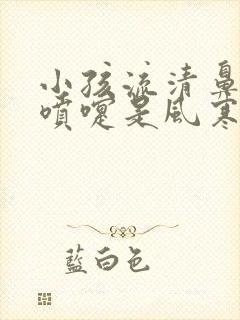 小孩流清鼻
噴嚏是風寒
藍白色